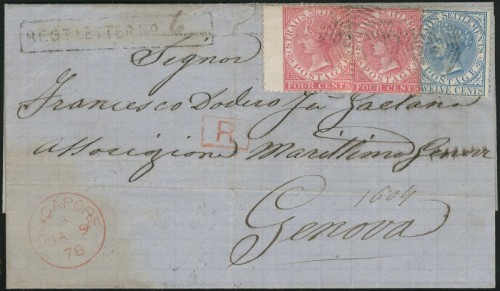 REGD LETTER No 6
STRAITS SETTLEMENTS
POSTAGE
FOUR CENTS
STRAITS SETTLEMENTS
POSTAGE
FOUR CENTS
STRAITS SETTLEMENTS
POSTAGE
TWELVE CENTS
Signor
Francesco Dodero fu Gaetano
R
Marittimo Genova
1604
Genova
SINGAPORE
9
78